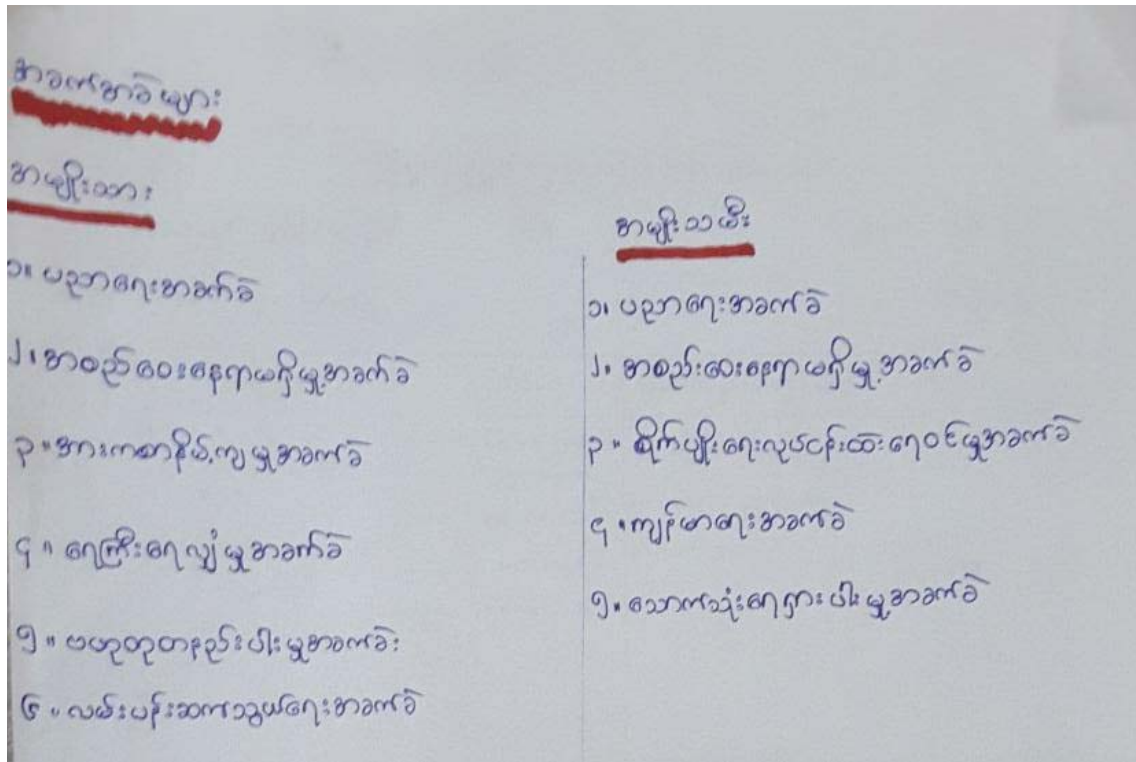 အခက်အခဲများ
အမျိုးသား
၁။ ပညာရေးအခက်ခဲ
၂။ အစည်ဝေးနေရာမရှိမှု့အခက်ခဲ
၃။ အားကစာနိမ့်ကျမှုအခက်ခဲ
၄။ ရေကြီးရေလျှံမှုအခက်ခဲ
၅။ ဗဟုတုတနည်းပါးမှုအခက်ခဲး
၆။ လမ်းပန်းဆက်သွယ်ရေးအခက်ခဲ
အမျိုးသမီး
၁။ ပညာရေးအခက်ခဲ
၂။ အစည်းဝေးနေရာမရှိမှု့အခက်ခဲ
၃။ စိုက်ပျိုးရေးလုပ်ငန်းထဲးရေဝင်မှုအခက်ခဲ
၄။ ကျန်မာရေးအခက်ခဲ
၅။ သောက်သုံးရေရှားပါးမှုအခက်ခဲ